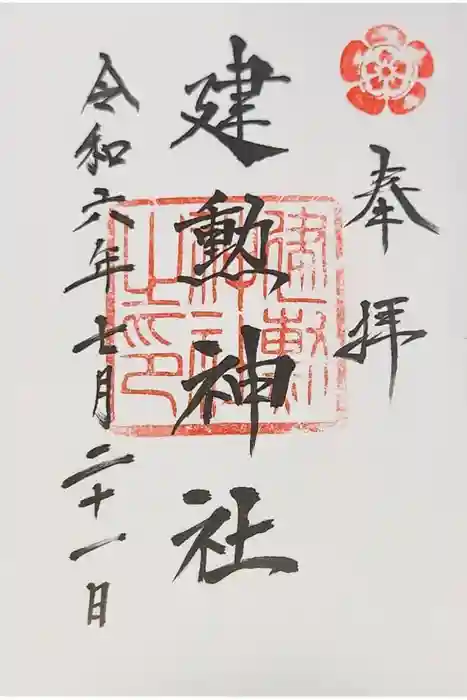 奉拝
建勲神社
建勲神社之印
令和六年七月二十一日